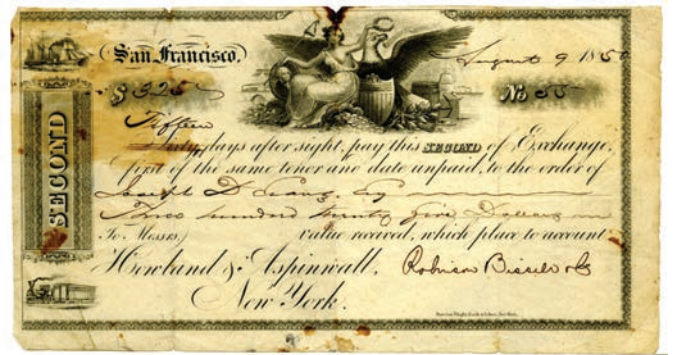 San Francisco, August 9 1850
$ 325 No 55
Fifteen
Thirty days after sight, pay this SECOND of Exchange,
first of the same tenor and date unpaid, to the order of
Joseph
Three hundred twenty five Dollars
To Messrs. value received, which place to account
Howland & Aspinwall, Robinson Bissell & Co
New York.
SECOND